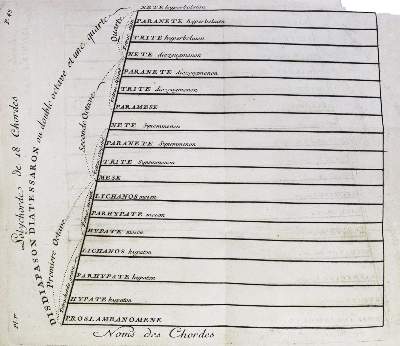 NETE hyperboleon
PARANETE hyperboleon
TRITE hyperboleon
NETE diezeugmenon
PARANETE diezeugmenon
TRITE diezeugmenon
PARAMESE
NETE Synemmenon
PARANETE Synemmenon
TRITE Synemmenon
MESE
LYCHANOS meson
PARHYPATE meson
HYPATE meson
LICHANOS hypaton
PARHYPATE hypaton
HYPATE hypaton
PROSLAMBANOMENE
Noms des Chordes
Polychorde de 18 Chordes
DISDIAPASON DIATESSARON ou double octave et une quarte
Premiere Octave
Seconde Octave
Quarte